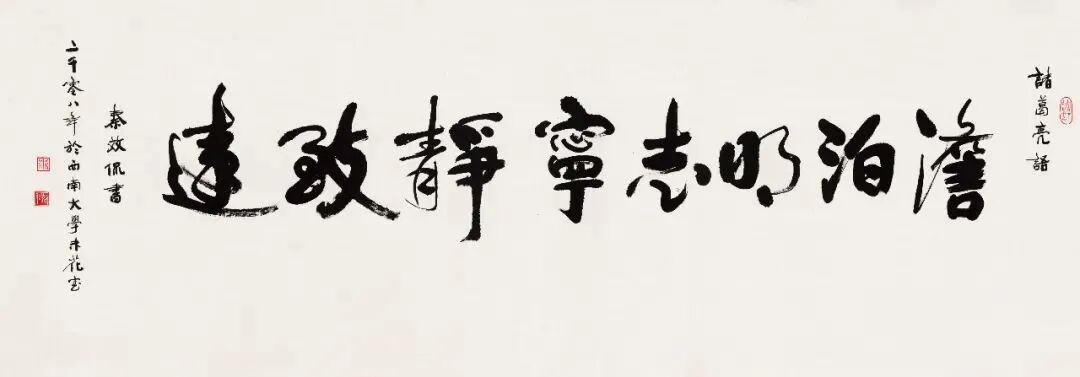 諸葛亮語
澹泊明志寧静致遠
秦效侃書
二千零八年於西南大學木花室